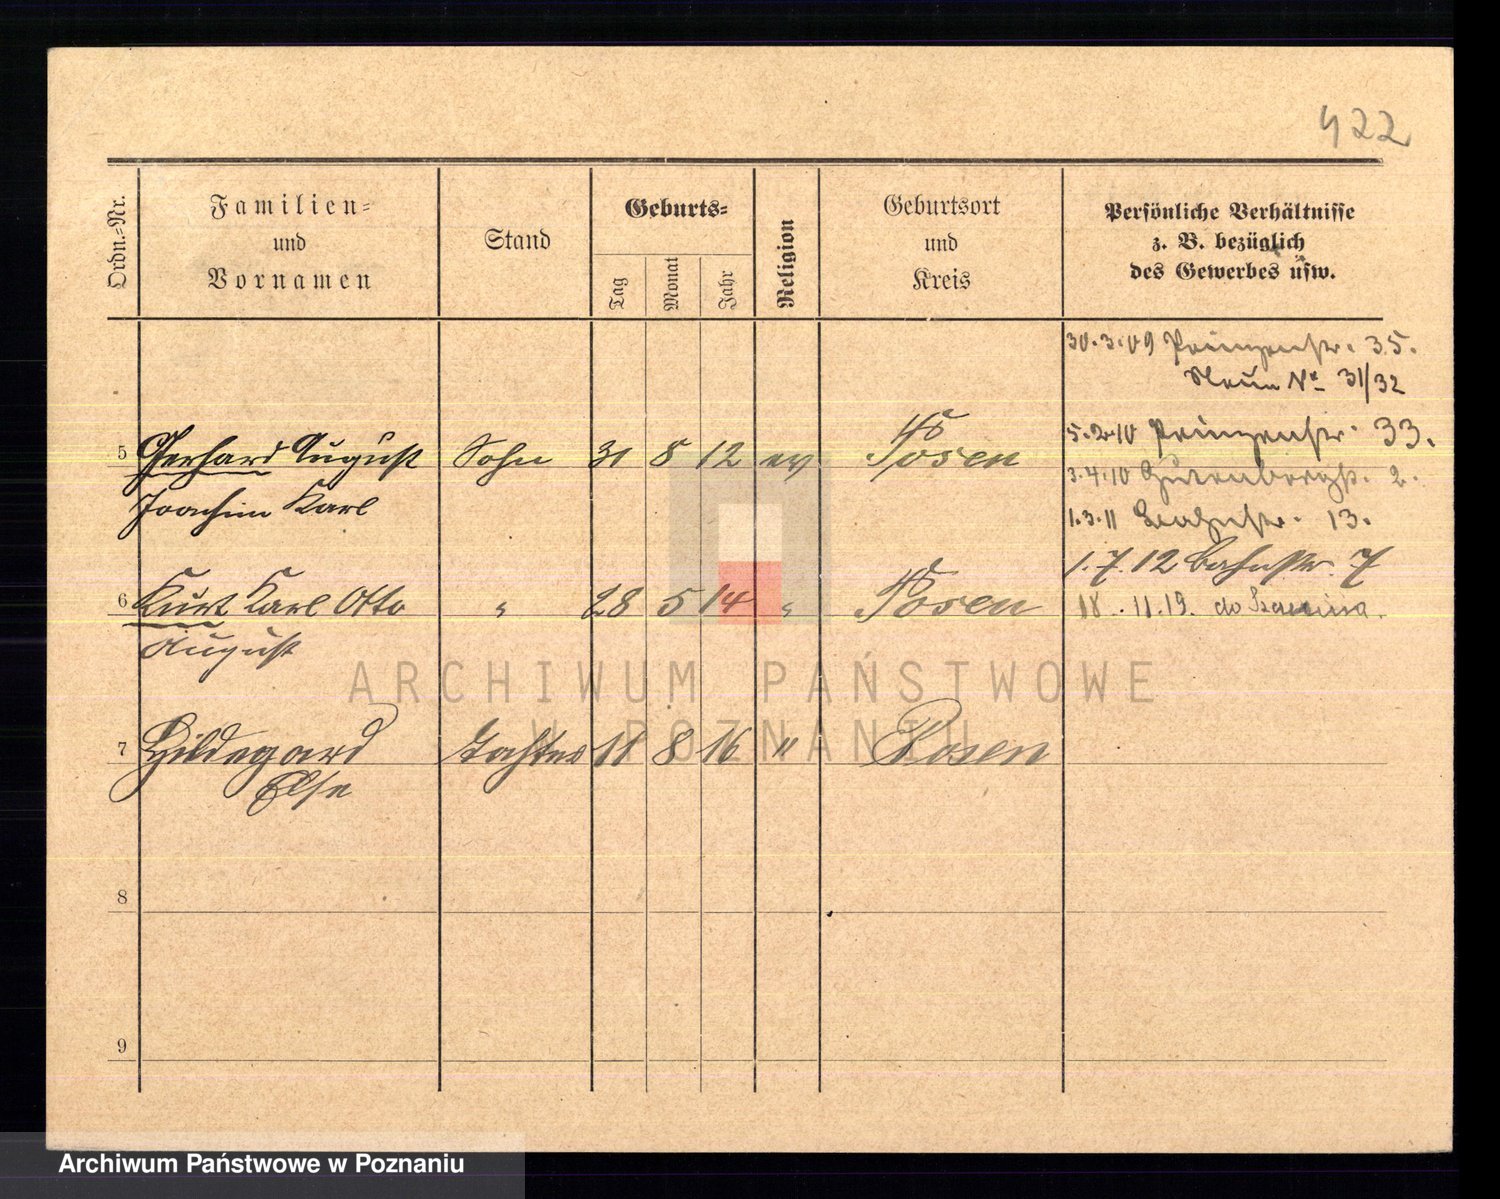 422
Ordn.-Nr.
Familien-
und
Vornamen
Stand
Geburts-
Tag
Monat
Jahr
Religion
Geburtsort
und
Kreis
Persönliche Verhältnisse
z. B. bezüglich
des Gewerbes usw.
30.3.09 Prinzenstr. 35.
Neue Nr 31/32
5.2.10 Prinzenstr. 33.
5 Gerhard August Sohn 31 8 12 ev Posen
3.4.10 Gutenbergst. 2.
Joachim Karl
1.3.11 13.
1.7.12 Bahnstr. 7
6 Kurt Karl Otto " 28 5 14 " Posen
18..11.19. do
August
ARCHIWUM PAŃSTWOWE
W POZNANIU
7 Hildegard Tochter 11 8 16 " Posen
Else
8
9
Archiwum Państwowe w Poznaniu